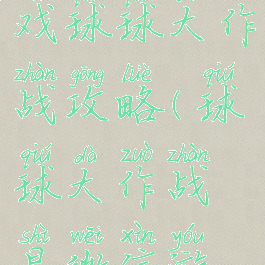 戏球球大作
zhàn gōng lüè qiú
战攻略(球
qiú dà zuò zhàn
球大作战
shì wēi xìn yóu
是微信游